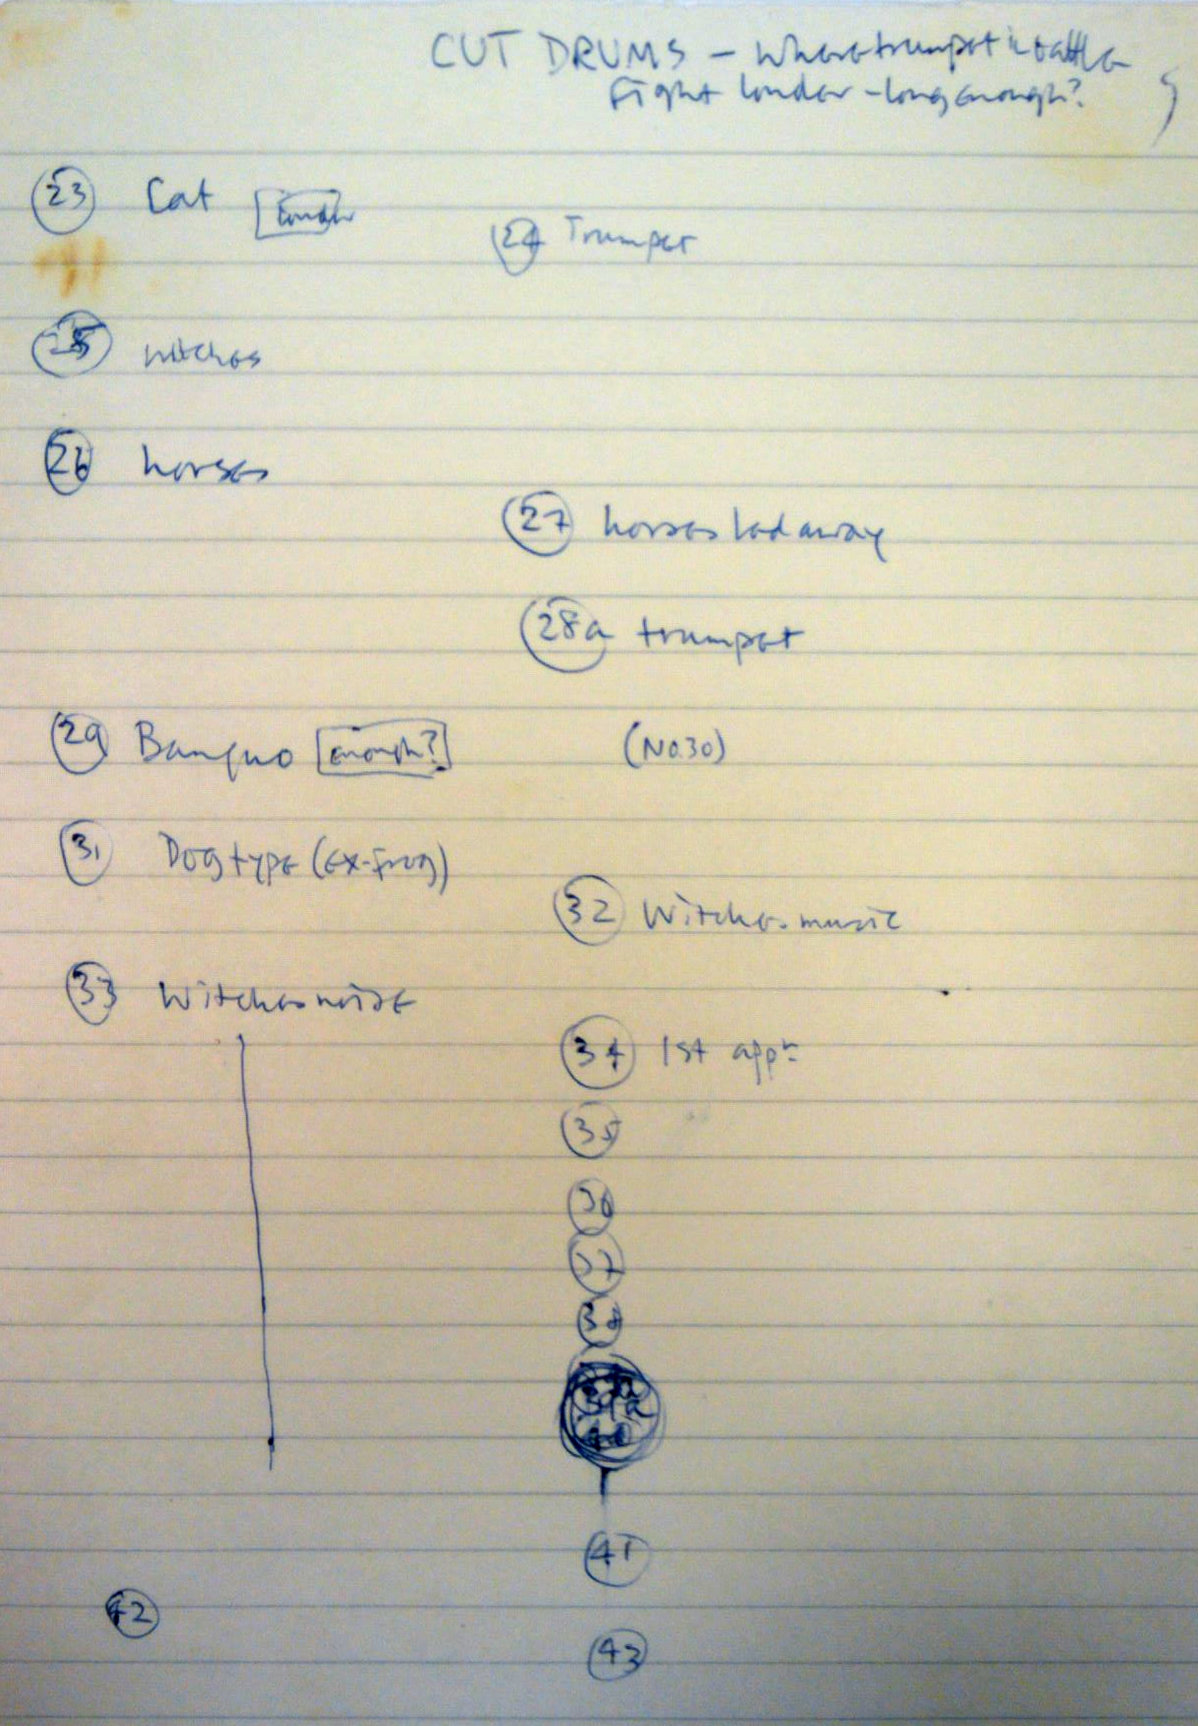 CUT DRUMS - Where trumpet in battle
Fight louder - long enough?
23 Cat louder
24 Trumpet
25 witches
26 horses
27 horses led away
28a trumpet
29 Banquo enough? (No.30)
31 Dog type (ex-frog)
32 Witches music
33 Witches noise
34 1st appn
35
36
37
38
41
42
43